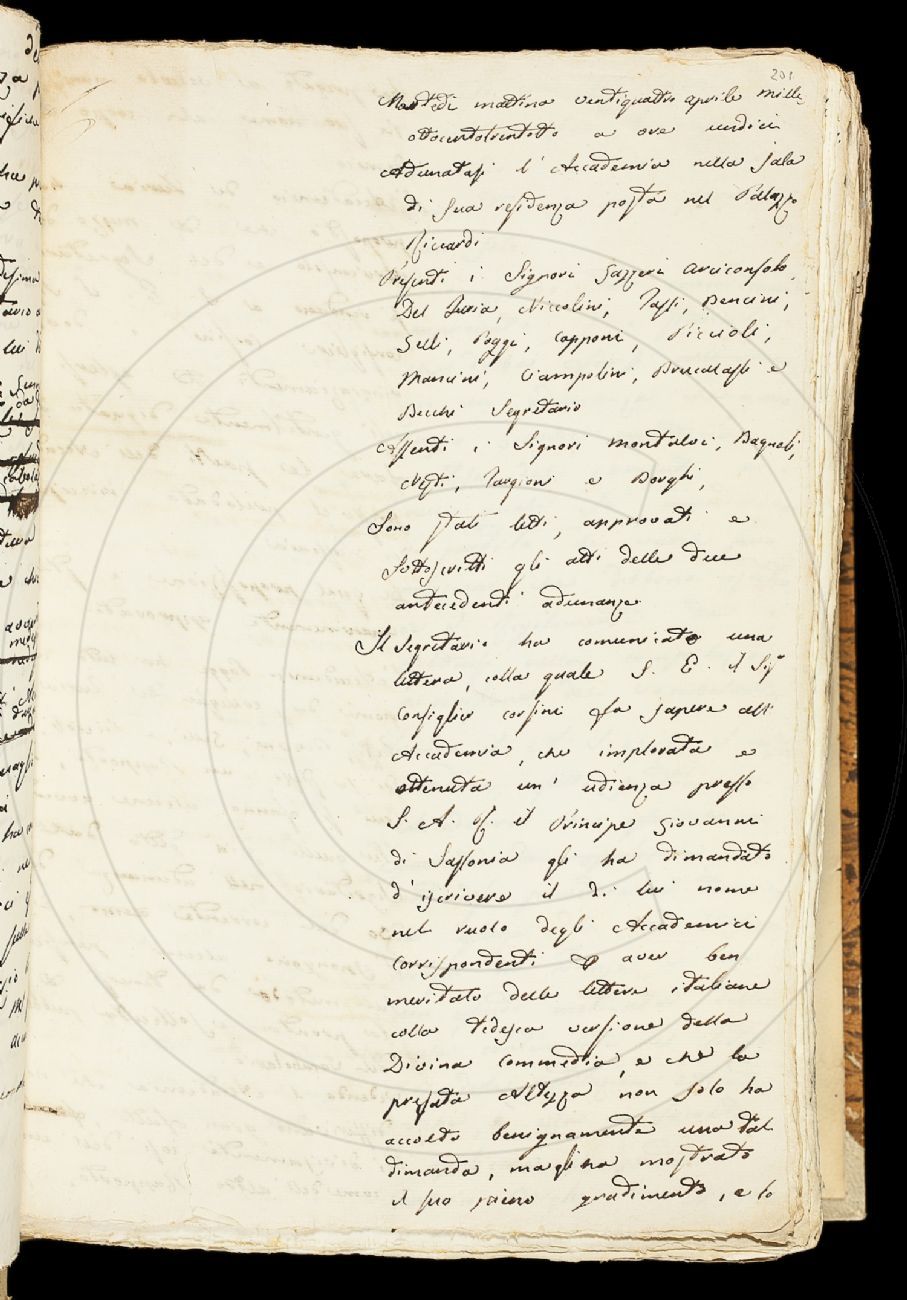 201
Martedì mattina ventiquattro aprile mille
ottocentotrentotto a ore undici
Adunatasi l'Accademia nella sala
di sua residenza posta nel Palazzo
Riccardi
Presenti i Signori Gazzeri Arciconsolo,
Del Furia, Niccolini, Tassi, Bencini,
Selli, Poggi, Capponi, Piccioli,
Mancini, Ciampolini, Bruscalassi e
Becchi Segretario
Assenti i Signori Montalvi, Bagnoli,
Nesti, Targioni e Borghi,
Sono stati letti, approvati e
sottoscritti gli atti delle due
antecedenti adunanze
Il Segretario ha comunicato una
lettera, colla quale S. E. il Sigr
Consiglier Corsini fa sapere all'
Accademia, che implorata e
ottenuta un' udienza presso
S. A. R. il Principe Giovanni
di Sassonia gli ha dimandato
d'iscrivere il di lui nome
nel ruolo degli Accademici
Corrispondenti aver ben
meritato delle lettere italiane
colla tedesca versione della
Divina Commedia, e che la
prefata Altezza non solo ha
accolto benignamente una tal
dimanda, ma gli ha mostrato
il suo pieno gradimento, e lo